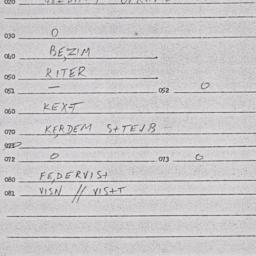 030 O
040 BEZIM
050 RITER
051 — 052 O
060 KEXT
070 KERDEM S+TEUB
072 O 073 O
080 FEDERVIS+
081 VISN // VIS+T